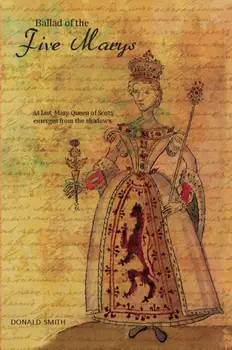 Ballad of the
Five Marys
At last, Mary Queen of Scots
emerges from the shadows
DONALD SMITH